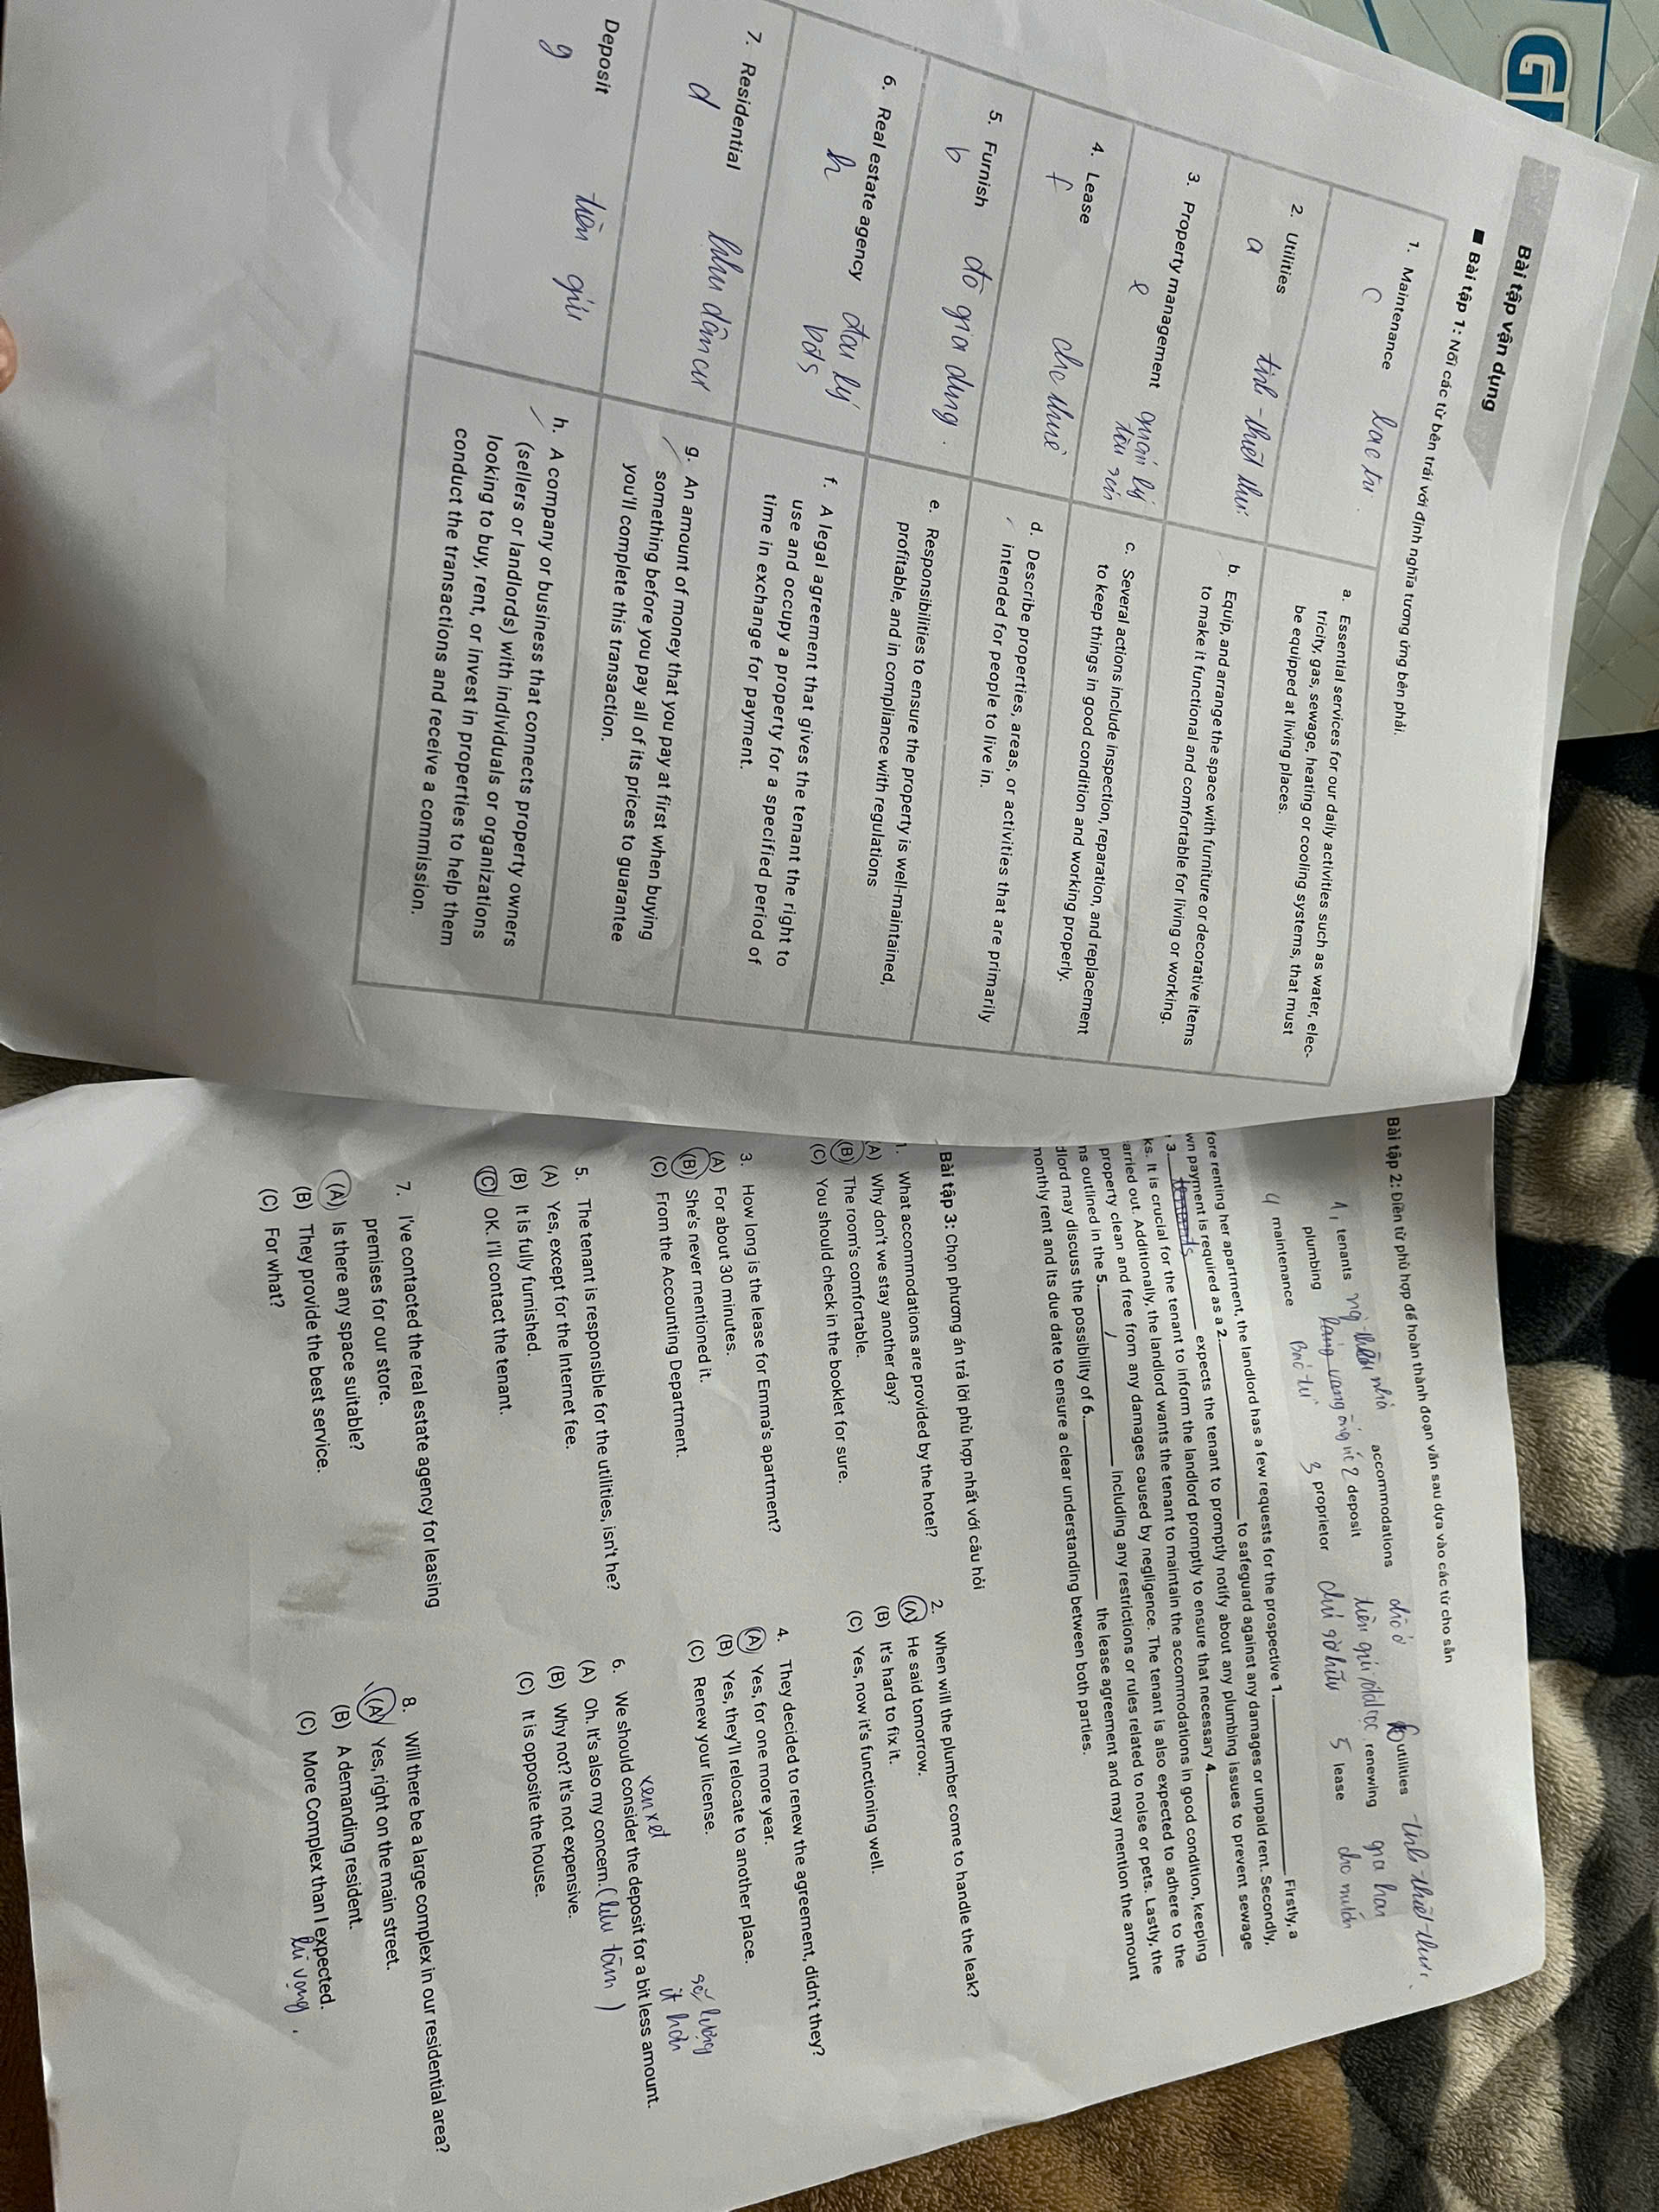 GI
Bài tập vận dụng
■ Bài tập 1: Nối các từ bên trái với định nghĩa tương ứng bên phải.
1. Maintenance
c
2. Utilities
a
3. Property management
e
quản lý
4. Lease
f
cho thuê
5. Furnish
b
đồ gia dụng.
6. Real estate agency
h
đại lý
bđs
7. Residential
d
khu dân cư
Deposit
g
tiền gửi
a. Essential services for our daily activities such as water, elec-
tricity, gas, sewage, heating or cooling systems, that must
be equipped at living places.
b. Equip, and arrange the space with furniture or decorative items
to make it functional and comfortable for living or working.
c. Several actions include inspection, reparation, and replacement
to keep things in good condition and working properly.
d. Describe properties, areas, or activities that are primarily
intended for people to live in.
e. Responsibilities to ensure the property is well-maintained,
profitable, and in compliance with regulations
f. A legal agreement that gives the tenant the right to
use and occupy a property for a specified period of
time in exchange for payment.
g. An amount of money that you pay at first when buying
something before you pay all of its prices to guarantee
you'll complete this transaction.
h. A company or business that connects property owners
(sellers or landlords) with individuals or organizations
looking to buy, rent, or invest in properties to help them
conduct the transactions and receive a commission.
Bài tập 2: Điền từ phù hợp để hoàn thành đoạn văn sau dựa vào các từ cho sẵn
1, tenants accommodations chỗ ở 6 utilities
plumbing 2 deposit renewing gia hạn
4 maintenance 3 proprietor chủ sở hữu 5 lease
fore renting her apartment, the landlord has a few requests for the prospective 1. Firstly, a
wn payment is required as a 2. to safeguard against any damages or unpaid rent. Secondly,
3. expects the tenant to promptly notify about any plumbing issues to prevent sewage
ks. It is crucial for the tenant to inform the landlord promptly to ensure that necessary 4.
arried out. Additionally, the landlord wants the tenant to maintain the accommodations in good condition, keeping
property clean and free from any damages caused by negligence. The tenant is also expected to adhere to the
ns outlined in the 5. including any restrictions or rules related to noise or pets. Lastly, the
dlord may discuss the possibility of 6. the lease agreement and may mention the amount
monthly rent and its due date to ensure a clear understanding between both parties.
Bài tập 3: Chọn phương án trả lời phù hợp nhất với câu hỏi
1. What accommodations are provided by the hotel?
(A) Why don't we stay another day?
(B) The room's comfortable.
(C) You should check in the booklet for sure.
2. When will the plumber come to handle the leak?
(A) He said tomorrow.
(B) It's hard to fix it.
(C) Yes, now it's functioning well.
3. How long is the lease for Emma's apartment?
(A) For about 30 minutes.
(B) She's never mentioned it.
(C) From the Accounting Department.
4. They decided to renew the agreement, didn't they?
(A) Yes, for one more year.
(B) Yes, they'll relocate to another place.
(C) Renew your license.
số lượng
ít hơn
xem xét
5. The tenant is responsible for the utilities, isn't he?
(A) Yes, except for the Internet fee.
(B) It is fully furnished.
(C) OK. I'll contact the tenant.
6. We should consider the deposit for a bit less amount.
(A) Oh. It's also my concern. (lưu tâm)
(B) Why not? It's not expensive.
(C) It is opposite the house.
7. I've contacted the real estate agency for leasing
premises for our store.
(A) Is there any space suitable?
(B) They provide the best service.
(C) For what?
8. Will there be a large complex in our residential area?
(A) Yes, right on the main street.
(B) A demanding resident.
(C) More Complex than I expected.
kì vọng.